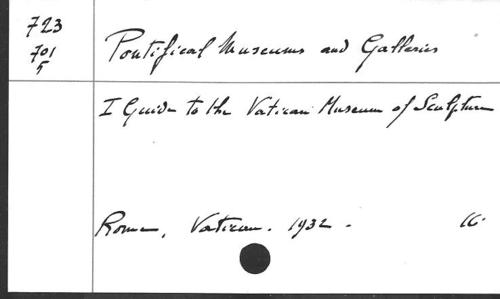 723
701
5
Pontifical Museums and Galleries
I Guide to the Vatican Museum of Sculpture
Rome, Vatican. 1932 -